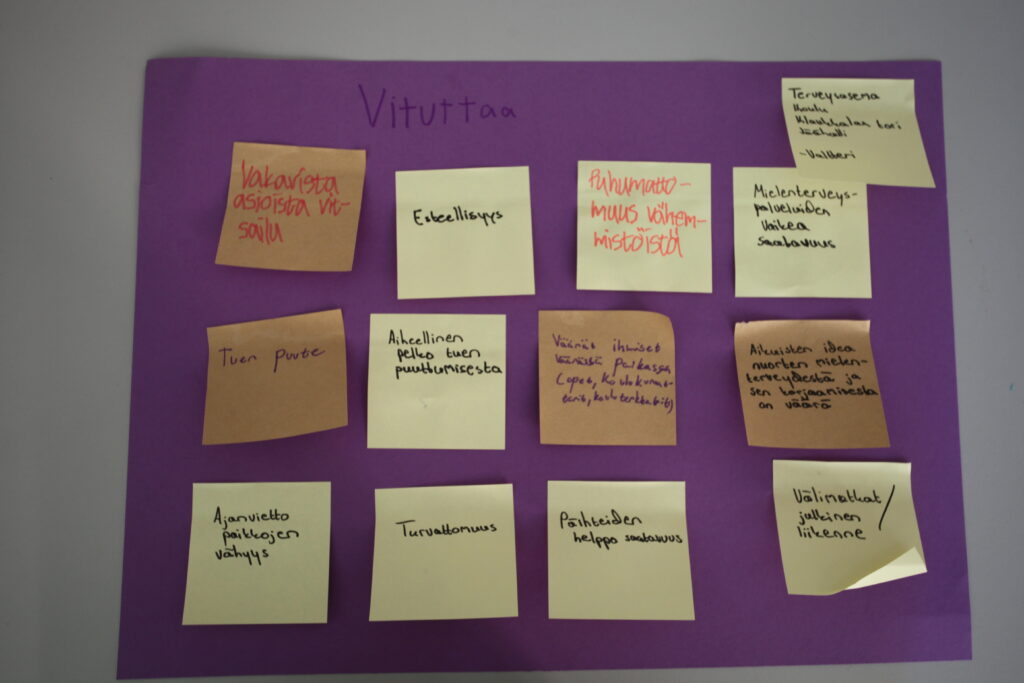 Vituttaa
Terveysasema
Koulu
Klaukkalan tori
Jäähalli
-Valtteri
Vakavista
asioista vit-
sailu
Esteellisyys
Puhumatto-
muus vähem-
mistöistä
Mielenterveys-
palveluiden
vaikea
saatavuus
Tuen puute
Aiheellinen
pelko tuen
puuttumisesta
Väärät ihmiset
väärässä paikassa
(opot, koulukuraat-
torit, kouluterkkarit)
Aikuisten idea
nuorten mielen-
terveydestä ja
sen korjaamisesta
on väärä
Ajanvietto
paikkojen
vähyys
Turvattomuus
Päihteiden
helppo saatavuus
Välimatkat /
julkinen
liikenne